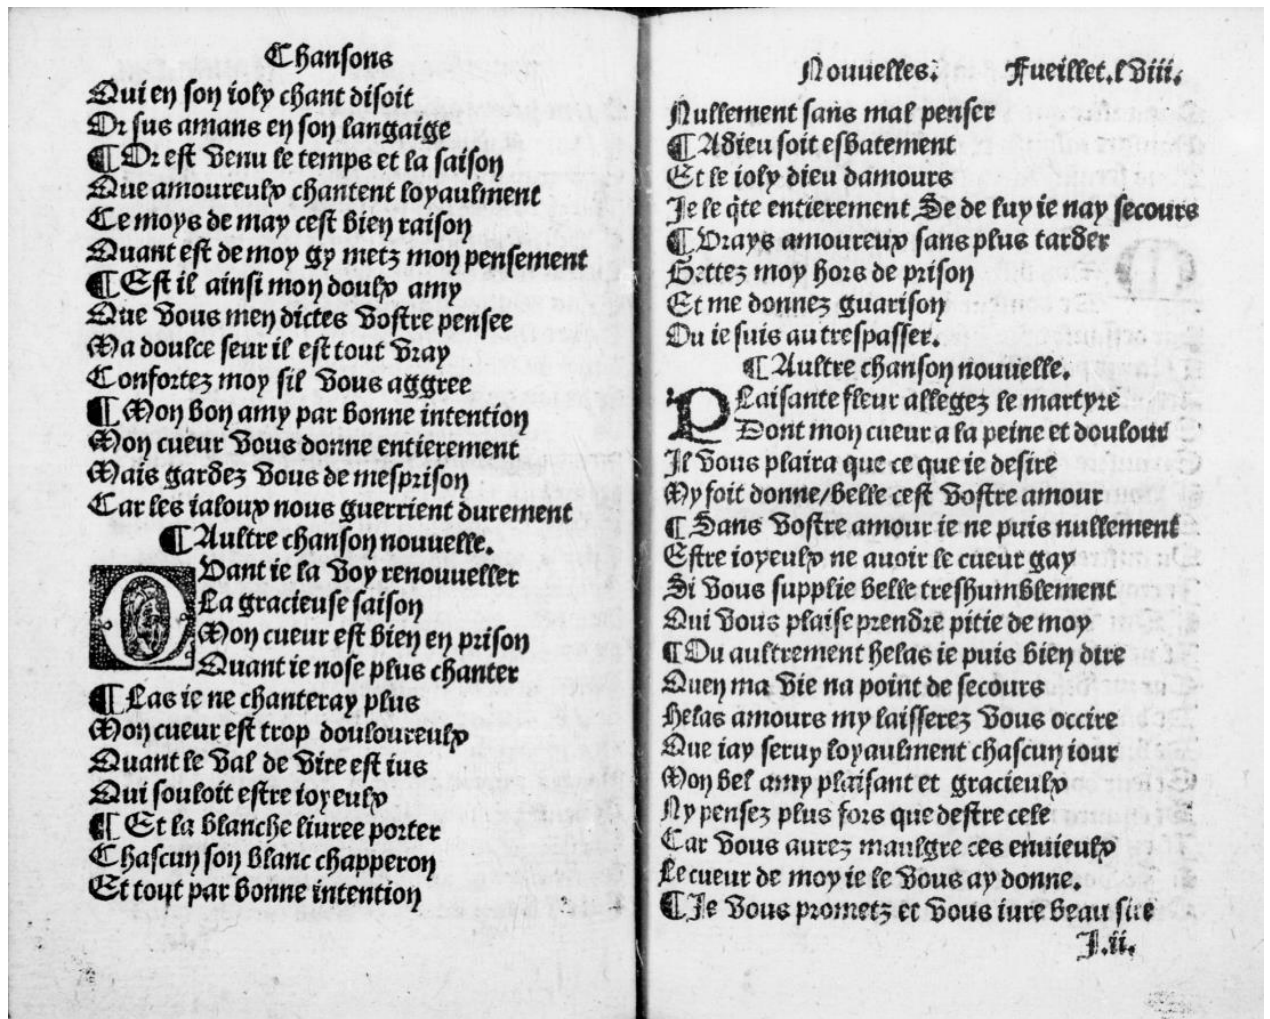 Chansons
Qui en son ioly chant disoit
Or sus amans en son langaige
¶ Or est venu le temps et la saison
Que amoureulx chantent loyaulment
Ce moys de may cest bien raison
Quant est de moy gy metz mon pensement
¶ Est il ainsi mon doulx amy
Que vous men dictes vostre pensee
Ma doulce seur il est tout vray
Confortez moy sil vous aggree
¶ Mon bon amy par bonne intention
Mon cueur vous donne entierement
Mais gardez vous de mesprison
Car les ialoux nous guerrient durement
¶ Aultre chanson nouuelle.
QVant ie la voy renouueller
La gracieuse saison
Mon cueur est bien en prison
Quant ie nose plus chanter
¶ Las ie ne chanteray plus
Mon cueur est trop douloureulx
Quant le val de vire est ius
Qui souloit estre ioyeulx
¶ Et la blanche liuree porter
Chascun son blanc chapperon
Et tout par bonne intention
Nouuelles. Fueillet.lviii.
Nullement sans mal penser
¶ Adieu soit esbatement
Et le ioly dieu damours
Je le q̃te entierement Se de luy ie nay secours
¶ Vrays amoureux sans plus tarder
Gettez moy hors de prison
Et me donnez guarison
Ou ie suis au trespasser.
¶ Aultre chanson nouuelle.
PLaisante fleur allegez le martyre
Dont mon cueur a la peine et doulour
Il vous plaira que ce que ie desire
My soit donne/belle cest vostre amour
¶ Sans vostre amour ie ne puis nullement
Estre ioyeulx ne auoir le cueur gay
Si vous supplie belle treshumblement
Qui vous plaise prendre pitie de moy
¶ Ou aultrement helas ie puis bien dire
Quen ma vie na point de secours
Helas amours my laisserez vous occire
Que iay seruy loyaulment chascun iour
Mon bel amy plaisant et gracieulx
Ny pensez plus fors que destre cele
Car vous aurez maulgre ces enuieulx
Le cueur de moy ie le vous ay donne.
¶ Je vous prometz et vous iure beau sire
I.ii.